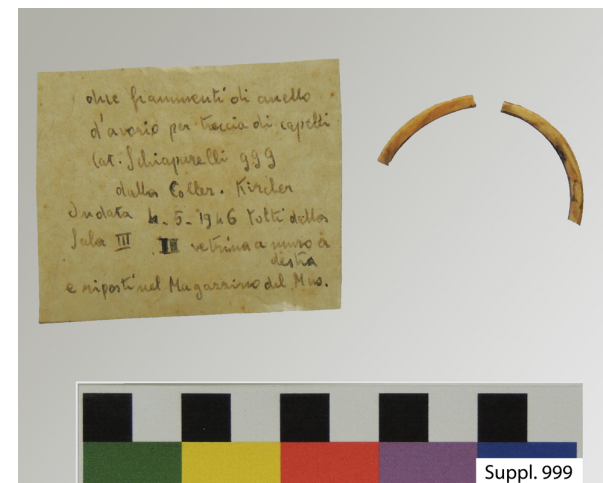 due frammenti di anello
d'avorio per treccia di capelli
Cat. Schiaparelli 999
dalla Collez. Kircher
In data 4-5-1946 tolti dalla
Sala III III vetrina a muro a
destra
e riposti nel Magazzino del Mus.
Suppl. 999